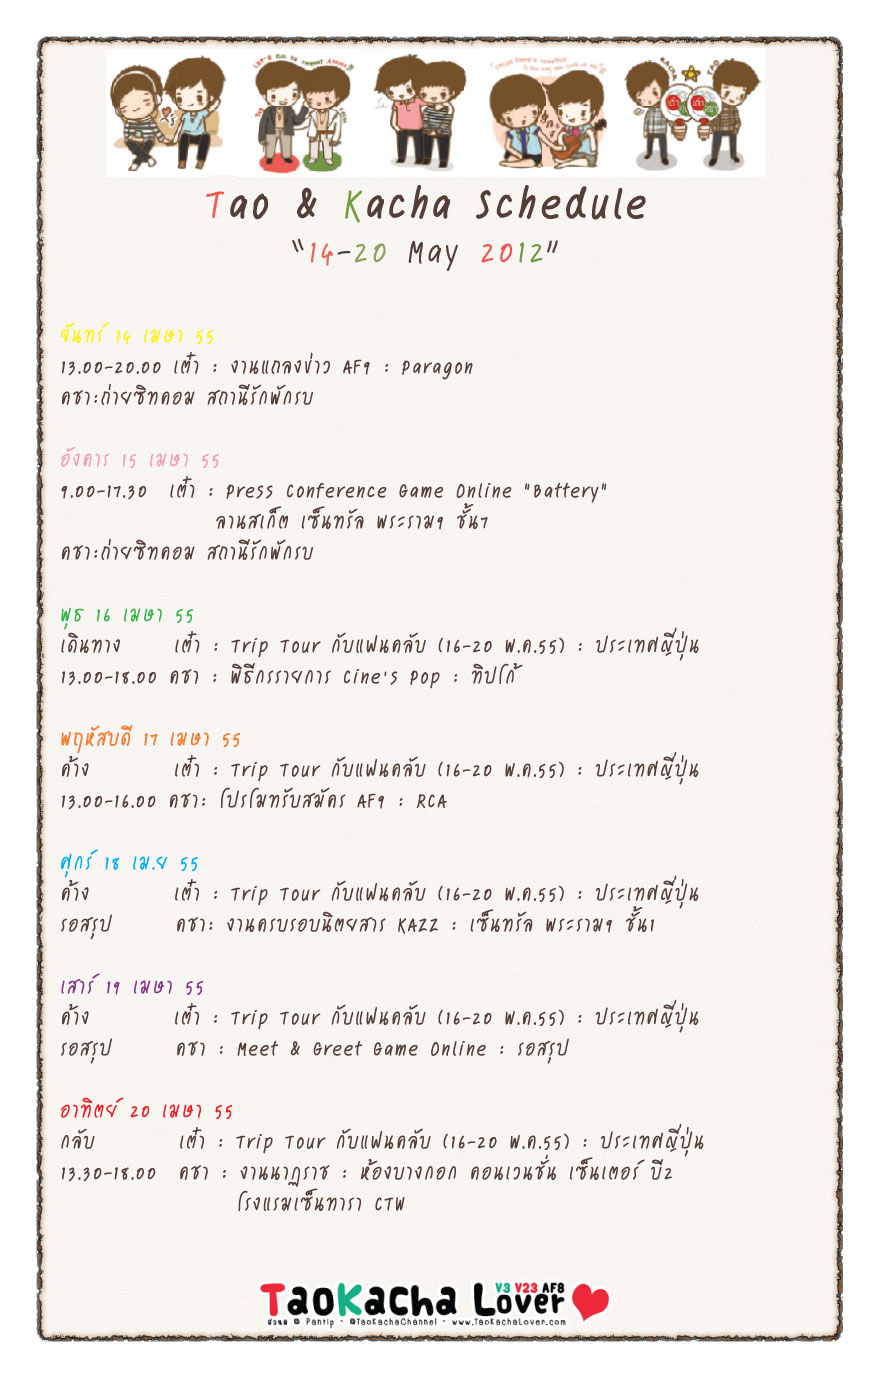 Tao & Kacha Schedule
"14-20 May 2012"
จันทร์ 14 เมษา 55
13.00-20.00 เต๋า : งานแถลงข่าว AF9 : Paragon
คชา:ถ่ายซิทคอม สถานีรักพักรบ
อังคาร 15 เมษา 55
9.00-17.30 เต๋า : Press Conference Game Online "Battery"
ลานสเก็ต เซ็นทรัล พระราม9 ชั้น7
คชา:ถ่ายซิทคอม สถานีรักพักรบ
พุธ 16 เมษา 55
เดินทาง เต๋า : Trip Tour กับแฟนคลับ (16-20 พ.ค.55) : ประเทศญี่ปุ่น
13.00-18.00 คชา : พิธีกรรายการ Cine's Pop : ทิปโก้
พฤหัสบดี 17 เมษา 55
ค้าง เต๋า : Trip Tour กับแฟนคลับ (16-20 พ.ค.55) : ประเทศญี่ปุ่น
13.00-16.00 คชา: โปรโมทรับสมัคร AF9 : RCA
ศุกร์ 18 เม.ย 55
ค้าง เต๋า : Trip Tour กับแฟนคลับ (16-20 พ.ค.55) : ประเทศญี่ปุ่น
รอสรุป คชา: งานครบรอบนิตยสาร KAZZ : เซ็นทรัล พระราม9 ชั้น1
เสาร์ 19 เมษา 55
ค้าง เต๋า : Trip Tour กับแฟนคลับ (16-20 พ.ค.55) : ประเทศญี่ปุ่น
รอสรุป คชา : Meet & Greet Game Online : รอสรุป
อาทิตย์ 20 เมษา 55
กลับ เต๋า : Trip Tour กับแฟนคลับ (16-20 พ.ค.55) : ประเทศญี่ปุ่น
13.30-18.00 คชา : งานนาฏราช : ห้องบางกอก คอนเวนชั่น เซ็นเตอร์ บี2
โรงแรมเซ็นทารา CTW
V3 V23 AF8
TaoKacha Lover
@ Pantip - @TaoKachaChannel - www.TaoKachaLover.com